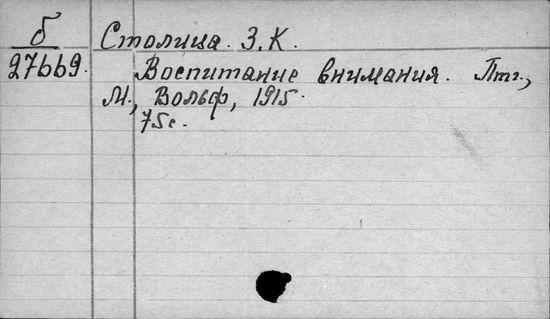 б Столица З.К.
27669. Воспитание внимания. Птг.,
М., Вольф, 1915.
75с.